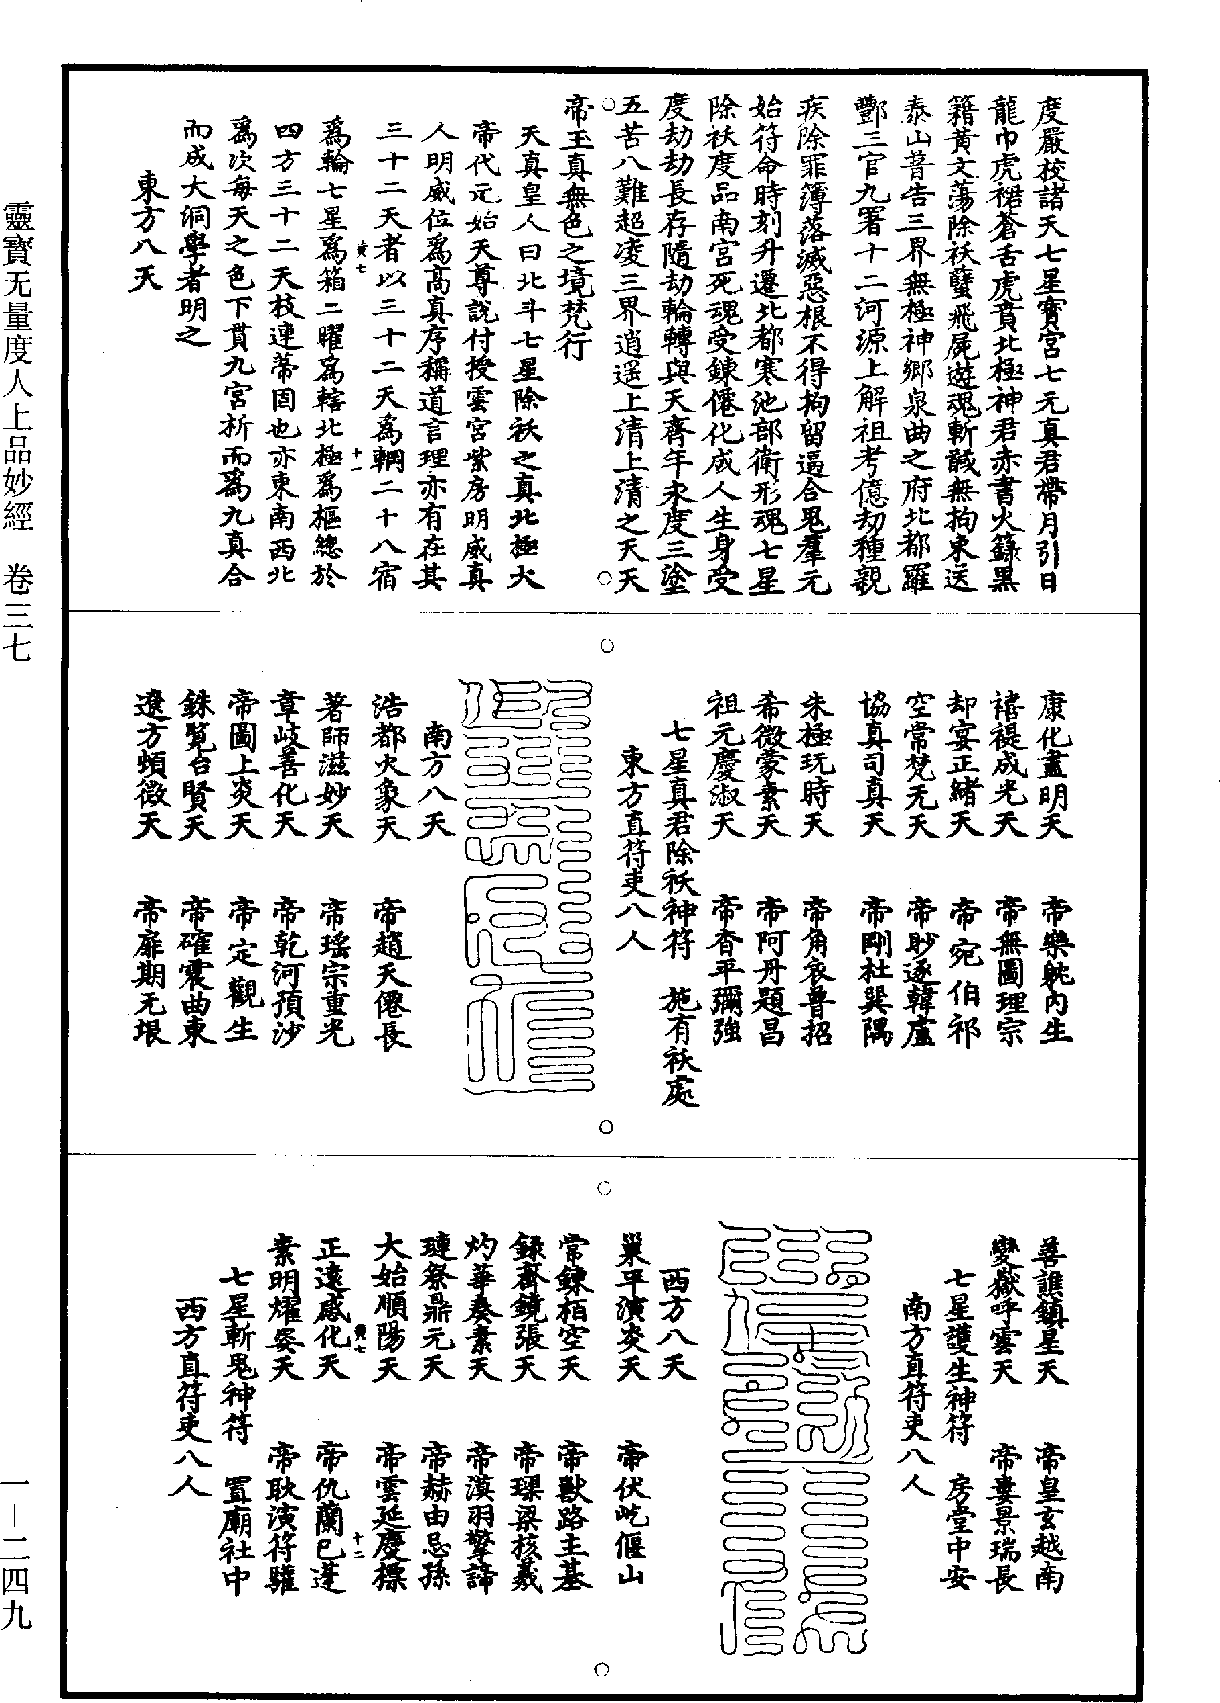 度嚴校諸天七星寶宮七元真君帶月引日
龍巾虎裙蒼舌虎賁北極神君赤書火籙黑
籍黃文蕩除祅孽飛屍遊魂斬馘無拘束送
泰山普告三界無極神鄉泉曲之府北都羅
酆三官九署十二河源上解祖考億劫種親
疾除罪簿落滅惡根不得拘留逼合鬼羣元
始符命時刻升遷北都寒池部衛形魂七星
除祅度品南宮死魂受鍊僊化成人生身受
度劫劫長存隨劫輪轉與天齊年永度三塗
五苦八難超凌三界逍遥上清上清之天天
帝玉真無色之境梵行
天真皇人曰北斗七星除祅之真北極大
帝代元始天尊說付授雲宮紫房明威真
人明威位為高真序稱道言理亦有在其
三十二天者以三十二天為輞二十八宿
黃七
十一
為輪七星為箱二曜為轄北極為樞總於
四方三十二天枝連蒂固也亦東南西北
為次每天之色下貫九宮析而為九真合
而成大洞學者明之
東方八天
康化盡明天　帝樂䠶內生
禧禔成光天　帝無圖理宗
却宴正緒天　帝宛伯祁
空常梵无天　帝眇逐韓盧
協真司真天　帝剛杜巽隅
朱極玩時天　帝角哀普招
希微蒙素天　帝阿丹題昌
祖元慶淑天　帝杳平彌強
七星真君除祅神符　施有祅處
東方直符吏八人
南方八天
浩都火象天　帝趙天僊長
著師滋妙天　帝瑶宗重光
章岐善化天　帝乾河預沙
帝圖上炎天　帝定觀生
銖覽台賢天　帝確震曲東
遼方頻微天　帝扉期无垠
善譙鎮星天　帝皇玄越南
變嶽呼雲天　帝妻景瑞長
七星護生神符　房堂中安
南方直符吏八人
西方八天
巢平演炎天　帝伏屹偃山
常鍊栢空天　帝獸路主基
録齋鏡張天　帝璪梁核羲
灼華奏素天　帝漠羽擎諦
璉祭鼎元天　帝赫由忌孫
大始順陽天　帝雲延慶標
黃七
十二
正遠感化天　帝仇蘭巴蓬
素明耀姿天　帝耿演符驩
七星斬鬼神符　置廟社中
西方直符吏八人
靈寶无量度人上品妙經　卷三七
一—二四九